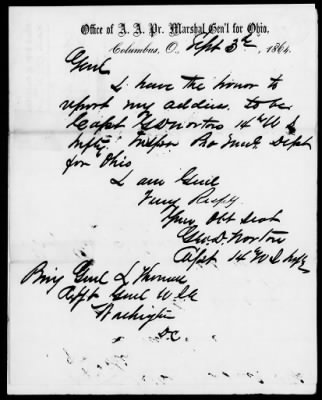 Office of A. A. Pr. Marshal Gen'l for Ohio,
Columbus, O., Sept 3d, 1864.
Genl
I have the honor to
report my address to be
Capt G D Norton 14th U S
Infty. Dept
for Ohio
I am Genl
Very Resply
Your Obt Servt
Geo. D. Norton
Capt 14 U S Infty
Brig Genl L Thomas
Adjt Genl U S A
Washington
D.C.